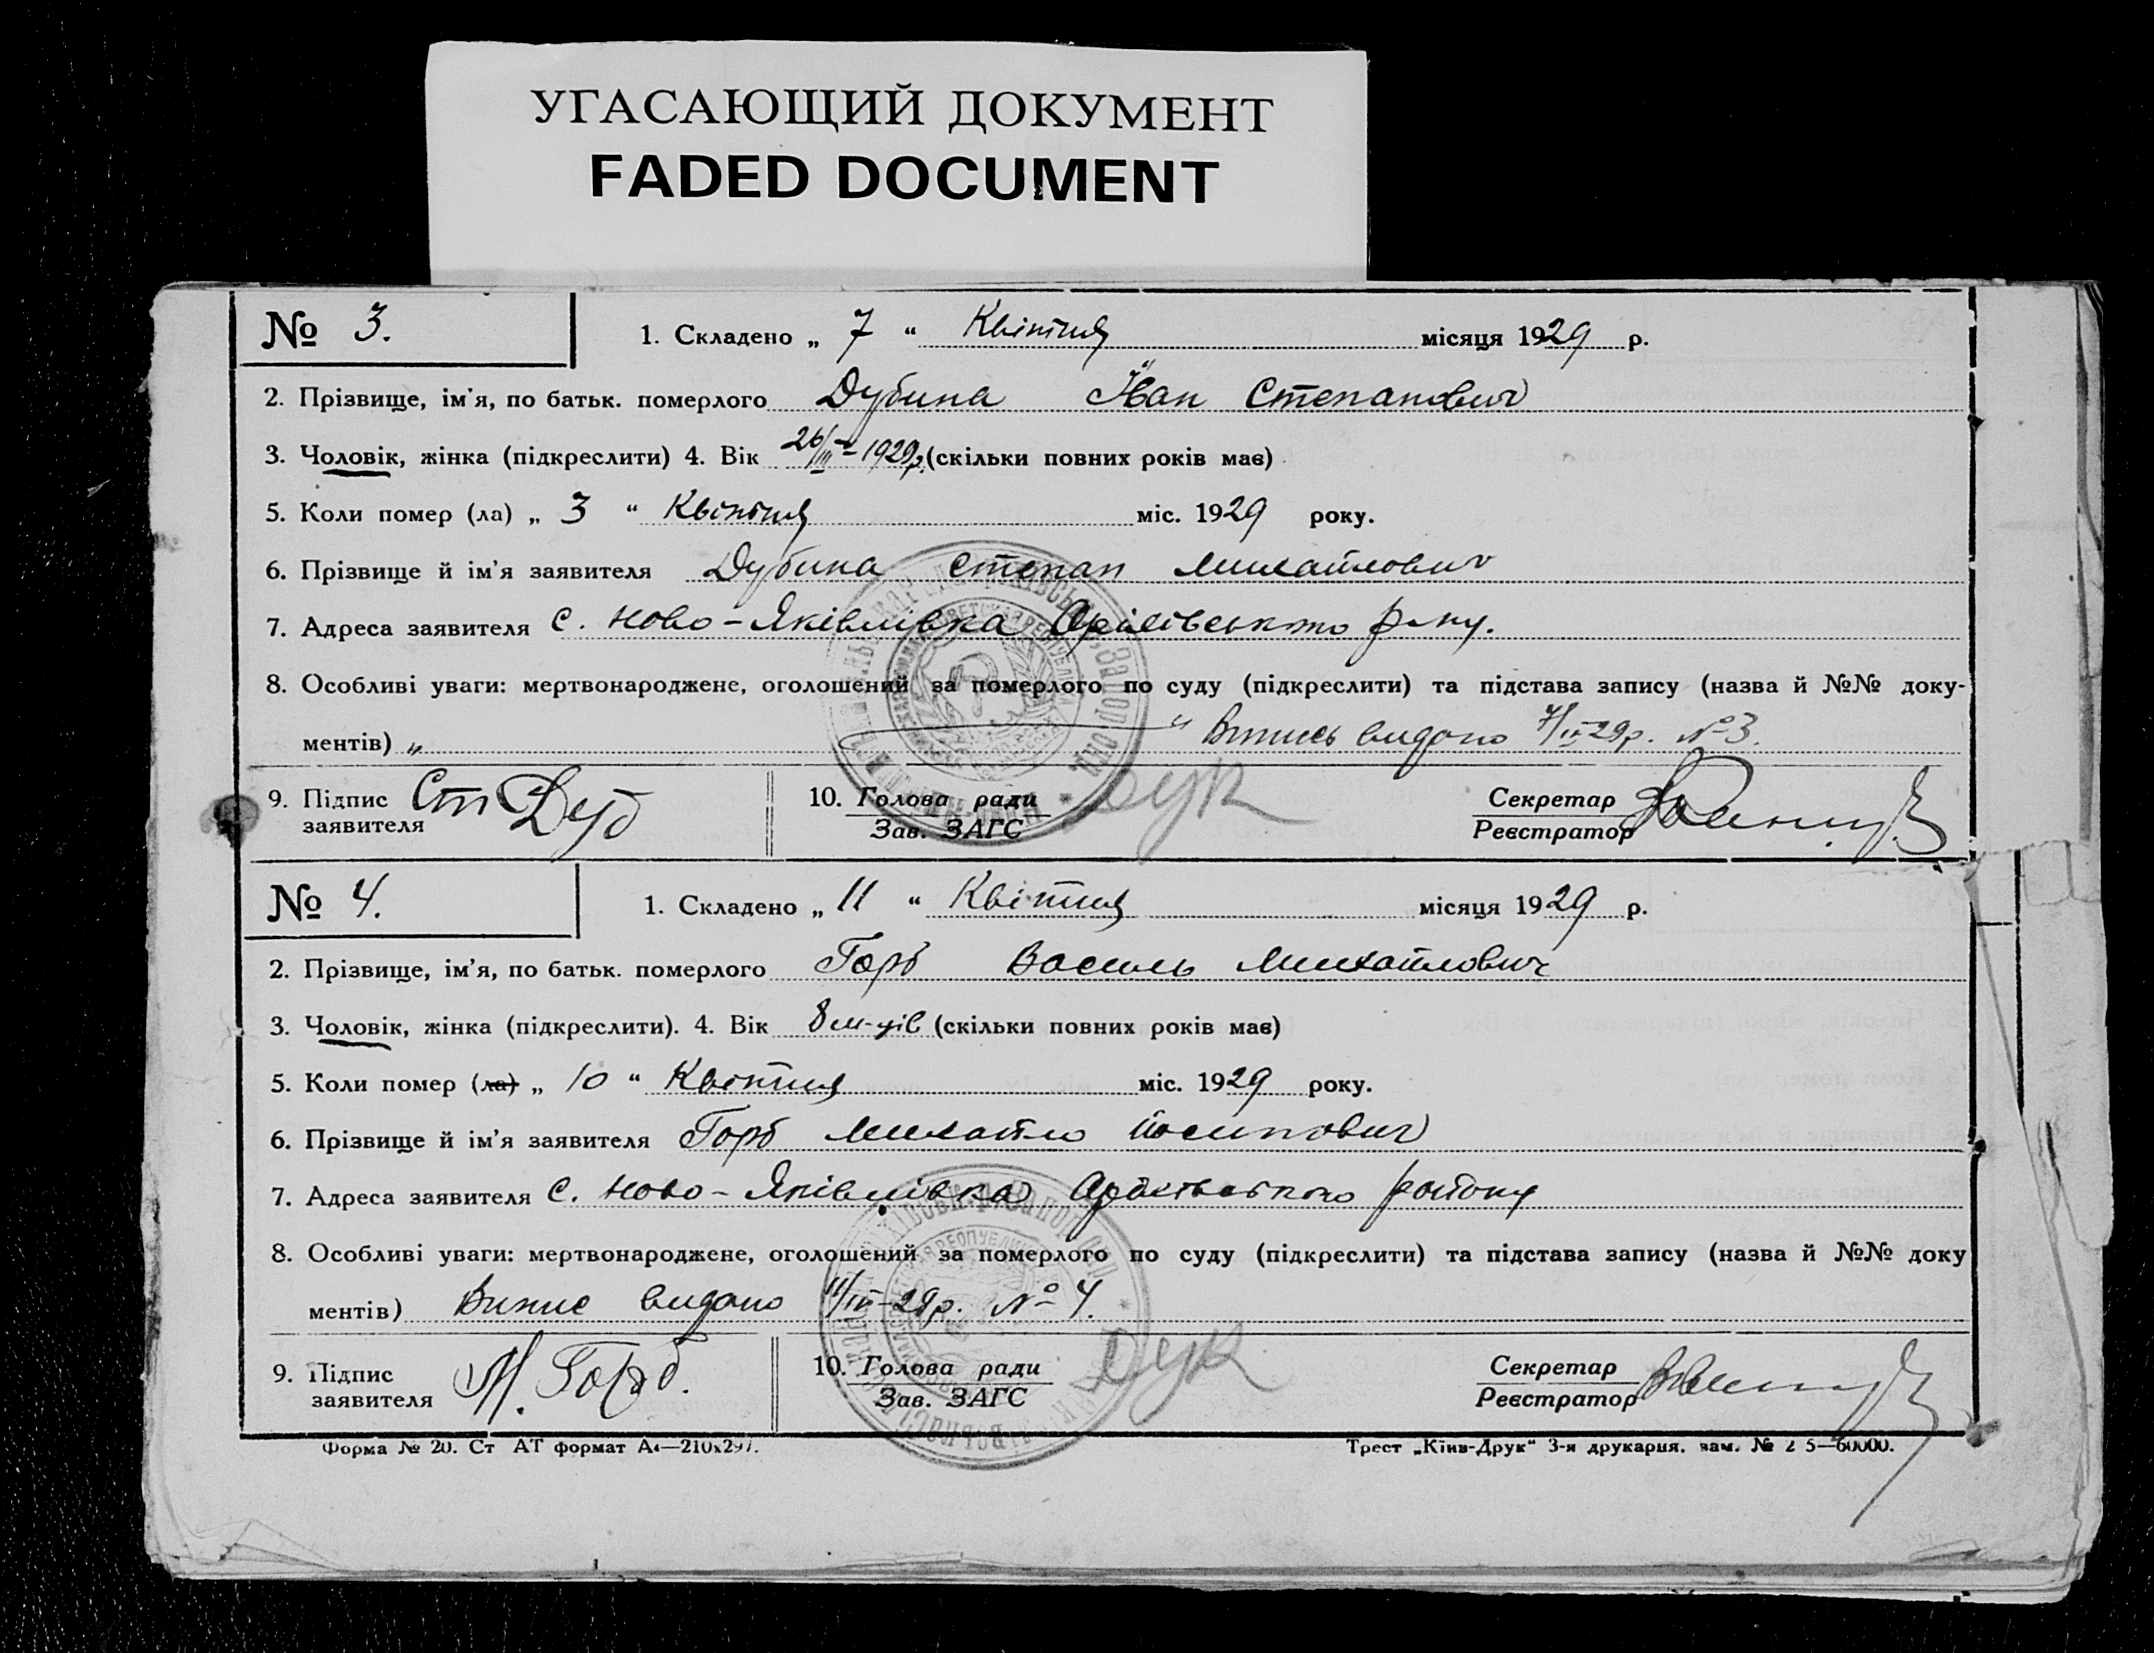 УГАСАЮЩИЙ ДОКУМЕНТ
FADED DOCUMENT
№ 3. 1. Складено „ 7 “ Квітня місяця 1929 р.
2. Прізвище, ім'я, по батьк. померлого Дубина Іван Степанович
3. Чоловік, жінка (підкреслити) 4. Вік 26/III-1929р. (скільки повних років має)
5. Коли помер (ла) „ 3 “ Квітня міс. 1929 року.
6. Прізвище й ім'я заявителя Дубина Степан Михайлович
7. Адреса заявителя с. Ново-Яківлівка р-ну.
8. Особливі уваги: мертвонароджене, оголошений за померлого по суду (підкреслити) та підстава запису (назва й №№ доку-
ментів) „ “ Випись видано 7/IV-29р. № 3.
9. Підпис Ст Дуб 10. Голова ради Секретар
заявителя Зав. ЗАГС Реєстратор
№ 4. 1. Складено „ 11 “ Квітня місяця 1929 р.
2. Прізвище, ім'я, по батьк. померлого Горб Василь Михайлович
3. Чоловік, жінка (підкреслити). 4. Вік 8 м-ців (скільки повних років має)
5. Коли помер (ла) „ 10 “ Квітня міс. 1929 року.
6. Прізвище й ім'я заявителя Горб Михайло Йосипович
7. Адреса заявителя с. Ново-Яківлівка району
8. Особливі уваги: мертвонароджене, оголошений за померлого по суду (підкреслити) та підстава запису (назва й №№ доку
ментів) Випис видано 11/IV-29р. № 4.
9. Підпис М. Горб. 10. Голова ради Секретар
заявителя Зав. ЗАГС Реєстратор
Форма № 20. Ст АТ формат А4—210x297. Трест „Київ-Друк“ 3-я друкарня. зам. №